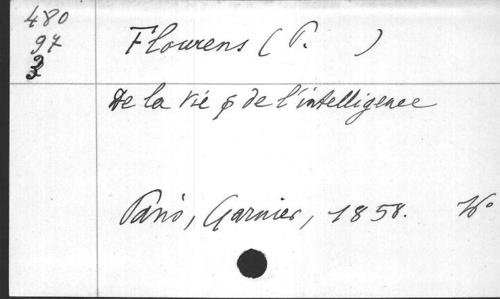 480
97
3
Flourens (P. )
De la vie & de l'intelligence
Paris, Garnier, 1858.